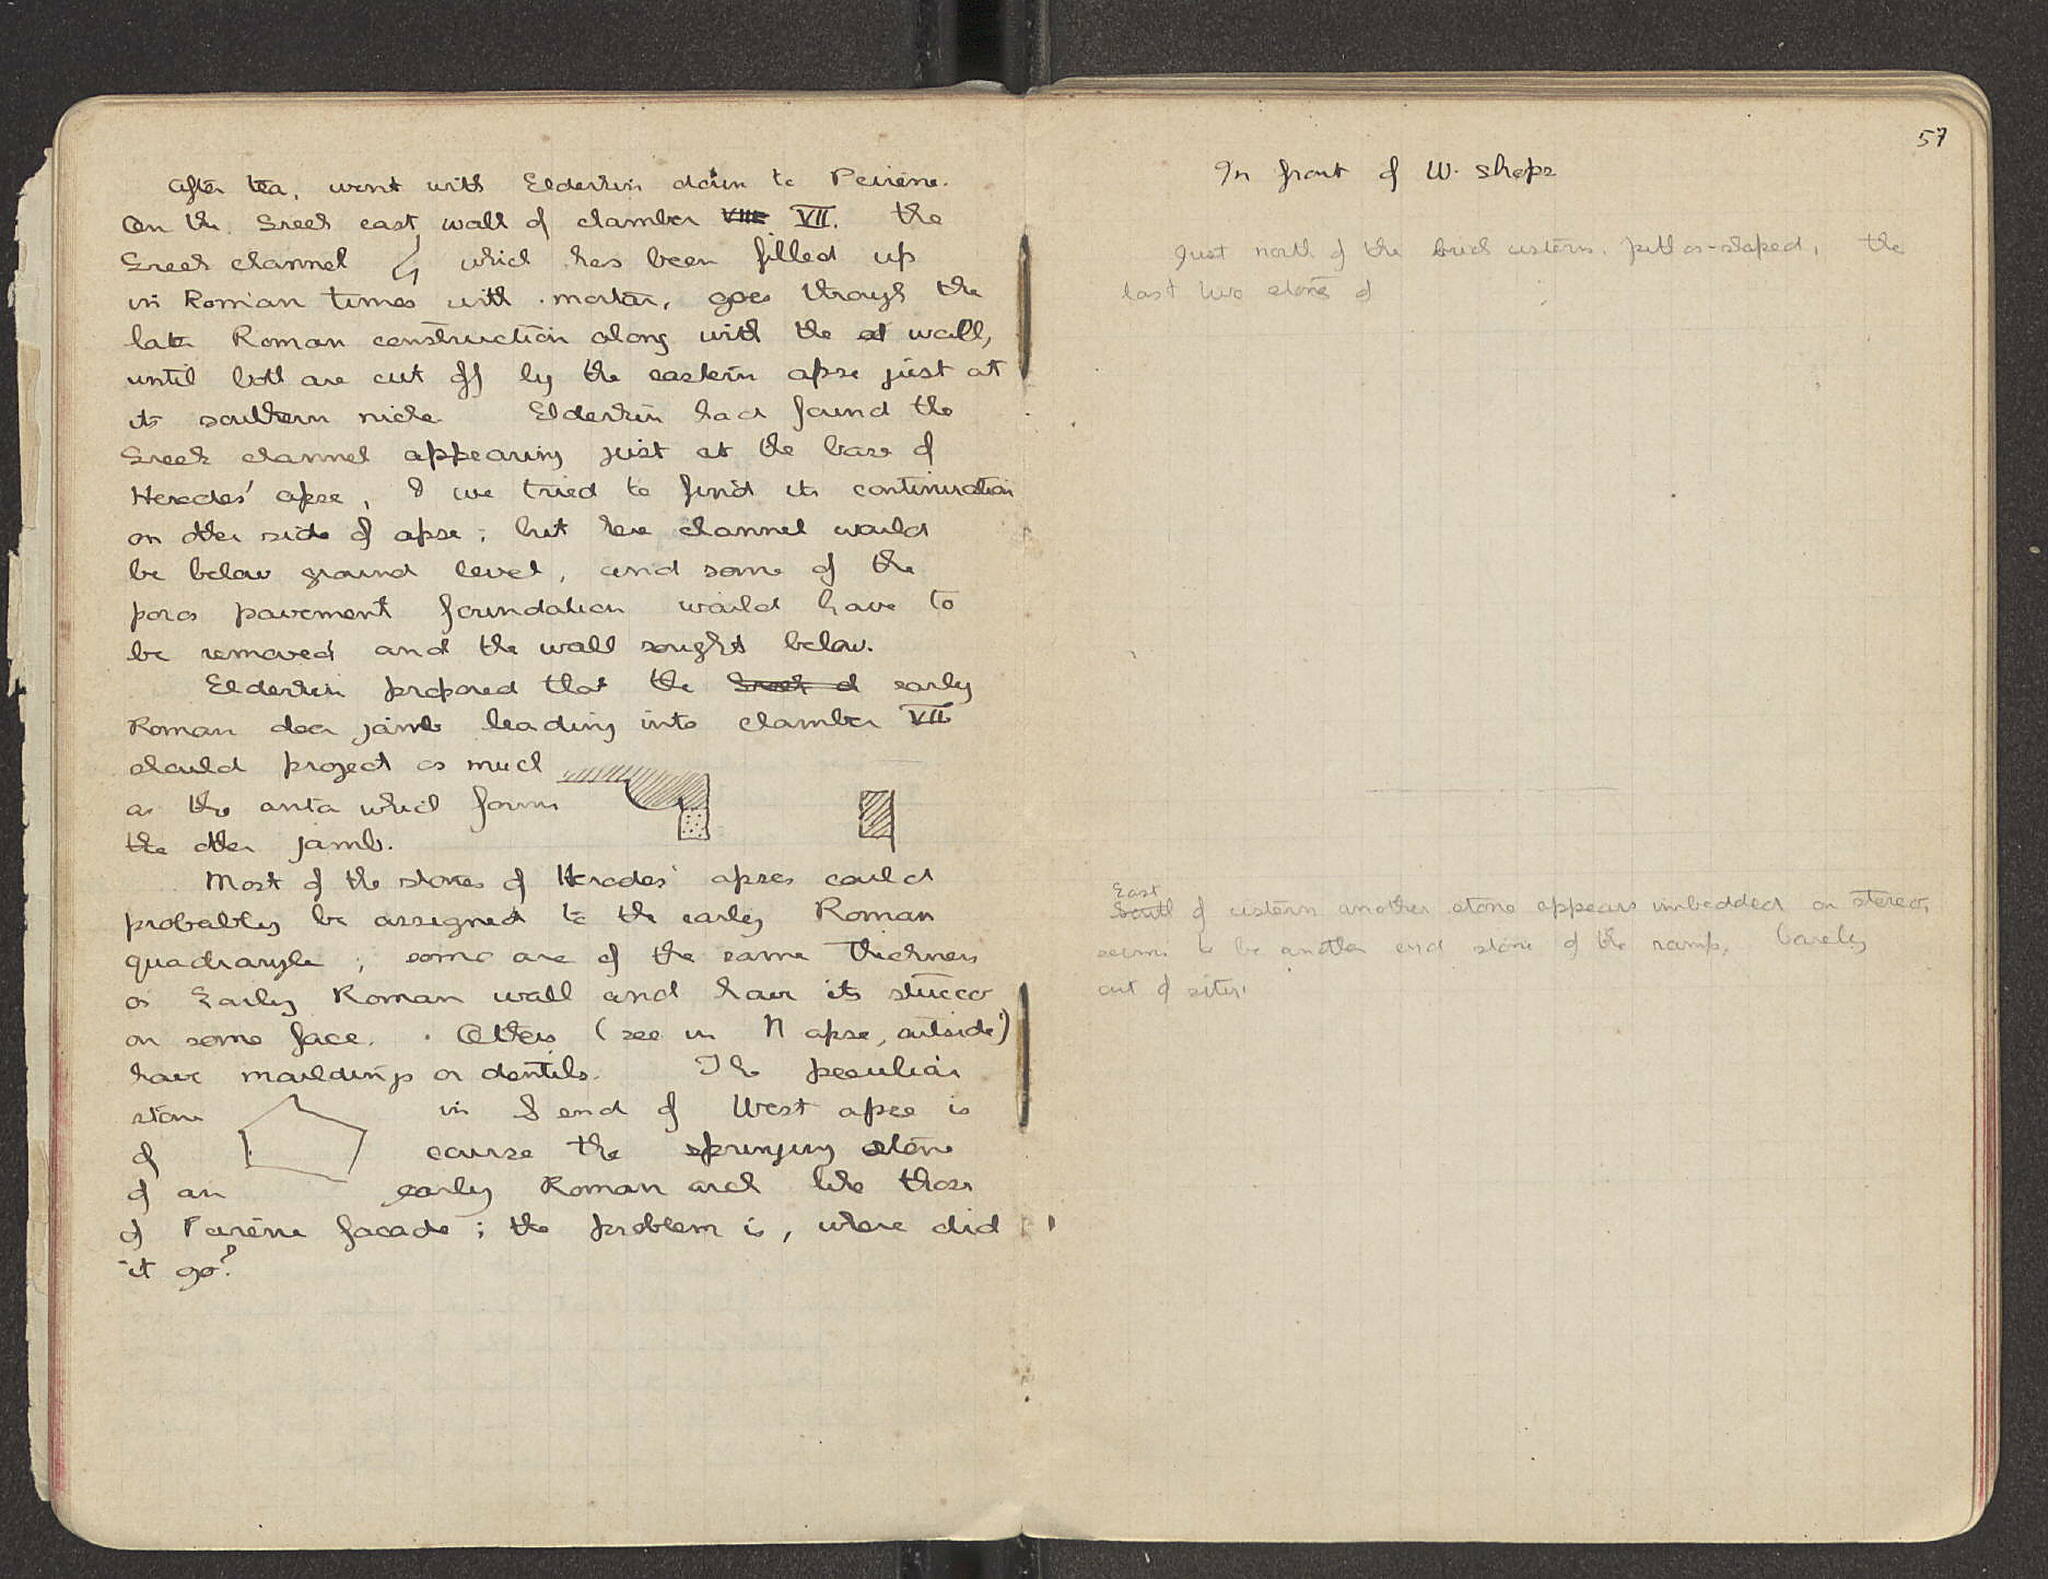 After tea, went with Elderkin down to Peirene.
On the Greek east wall of chamber VIII VII. the
Greek channel which has been filled up
in Roman times with mortar, goes through the
late Roman construction along with the wall,
until both are cut off by the eastern apse just at
its southern niche Elderkin had found the
Greek channel appearing just at the base of
Herodes' apse, & we tried to find its continuation
on other side of apse; but here channel would
be below ground level, and some of the
poros pavement foundation would have to
be removed and the wall sought below.
Elderkin proposed that the Greek d early
Roman door jamb leading into chamber VII
should project as much
as the anta which forms
the other jamb.
Most of the stones of Herodes' apses could
probably be assigned to the early Roman
quadrangle; some are of the same thickness
as Early Roman wall and have its stucco
on some face. Others (see in N apse, outside)
have mouldings or dentils. The peculiar
stone in S end of West apse is
of course the springing stone
of an early Roman arch like those
of Peirene facade; the problem is, where did
it go?
57
In front of W. shops
Just north of the brick cistern, pithos-shaped, the
last two stones of
East
South of cistern another stone appears imbedded on stereo,
seems to be another end stone of the ramp, barely
out of situ.